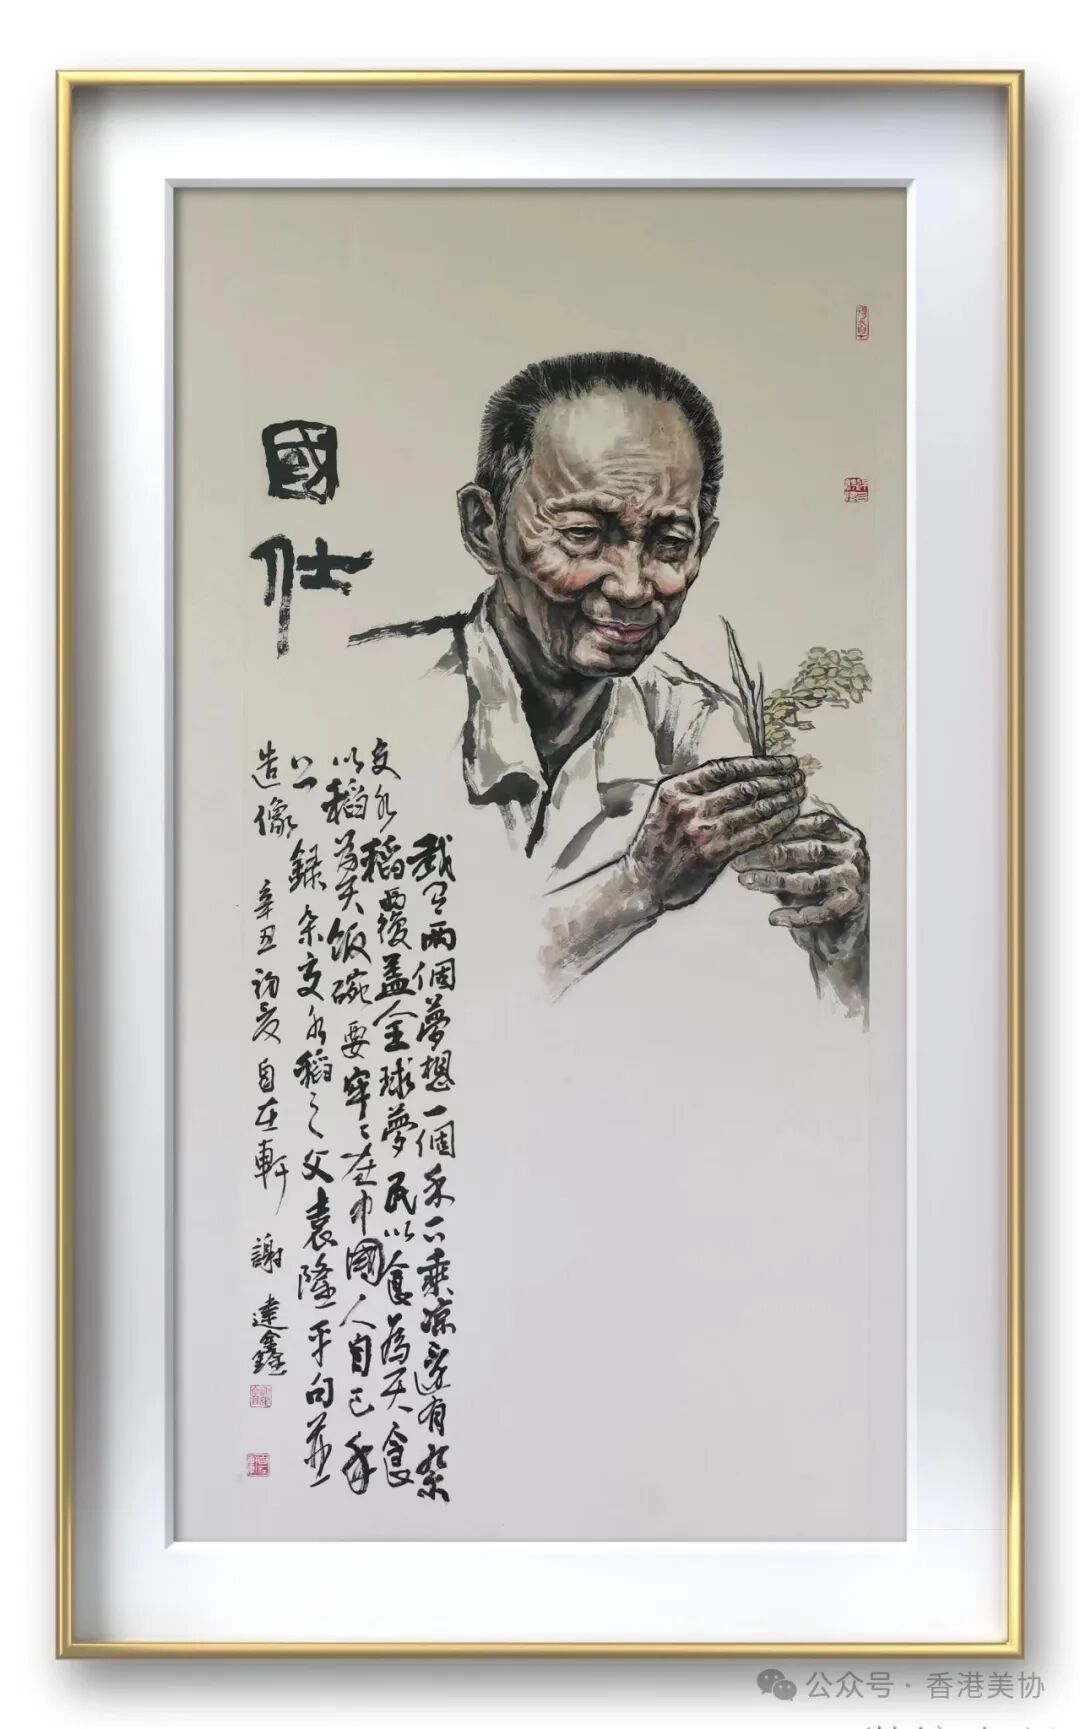 國仕
我有兩個夢想一個禾下乘涼還有杂
交水稻覆蓋全球夢民以食為天食
以稻為天飯碗要牢々在中國人自己手
上 錄杂交水稻之父袁隆平句並
造像 辛丑初夏自在軒 謝達鑫
公众号 · 香港美协